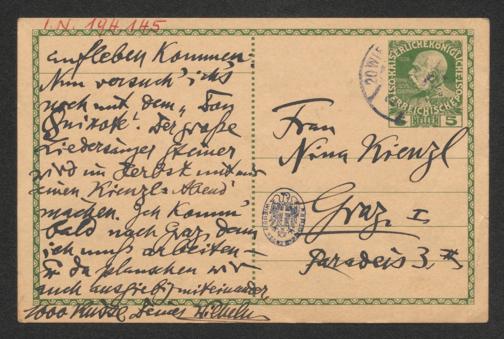 I.N. 194.145
aufleben kommen.
Nun versuch' ich's
noch mit dem „Don
Quixote". Der große
Liedersänger Steiner
wird im Herbst mit mir
einen Kienzl-Abend
machen. Ich komm'
bald nach Graz, denn
ich muß arbeiten
da plauschen wir
auch ausgiebig miteinander
1000 Küsse Deines Wilhelm
KAISERLICHE KÖNIGLICHE
ÖSTERREICHISCHE
5 HELLER
20 WIE
Frau
Nina Kienzl
Graz, I
Paradeis 3.